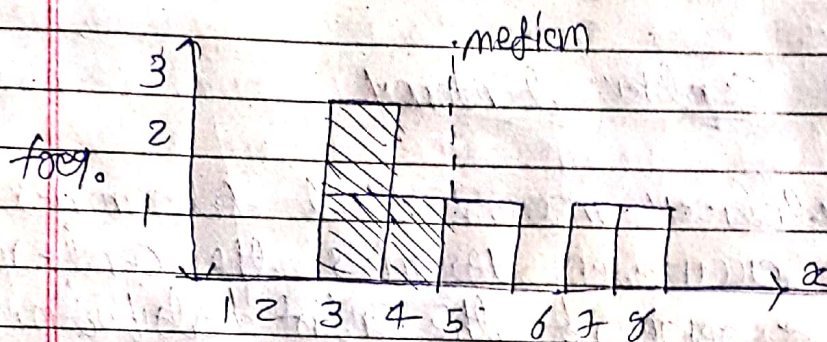 median
3
2
freq.
1
x
1 2 3 4 5 6 7 8